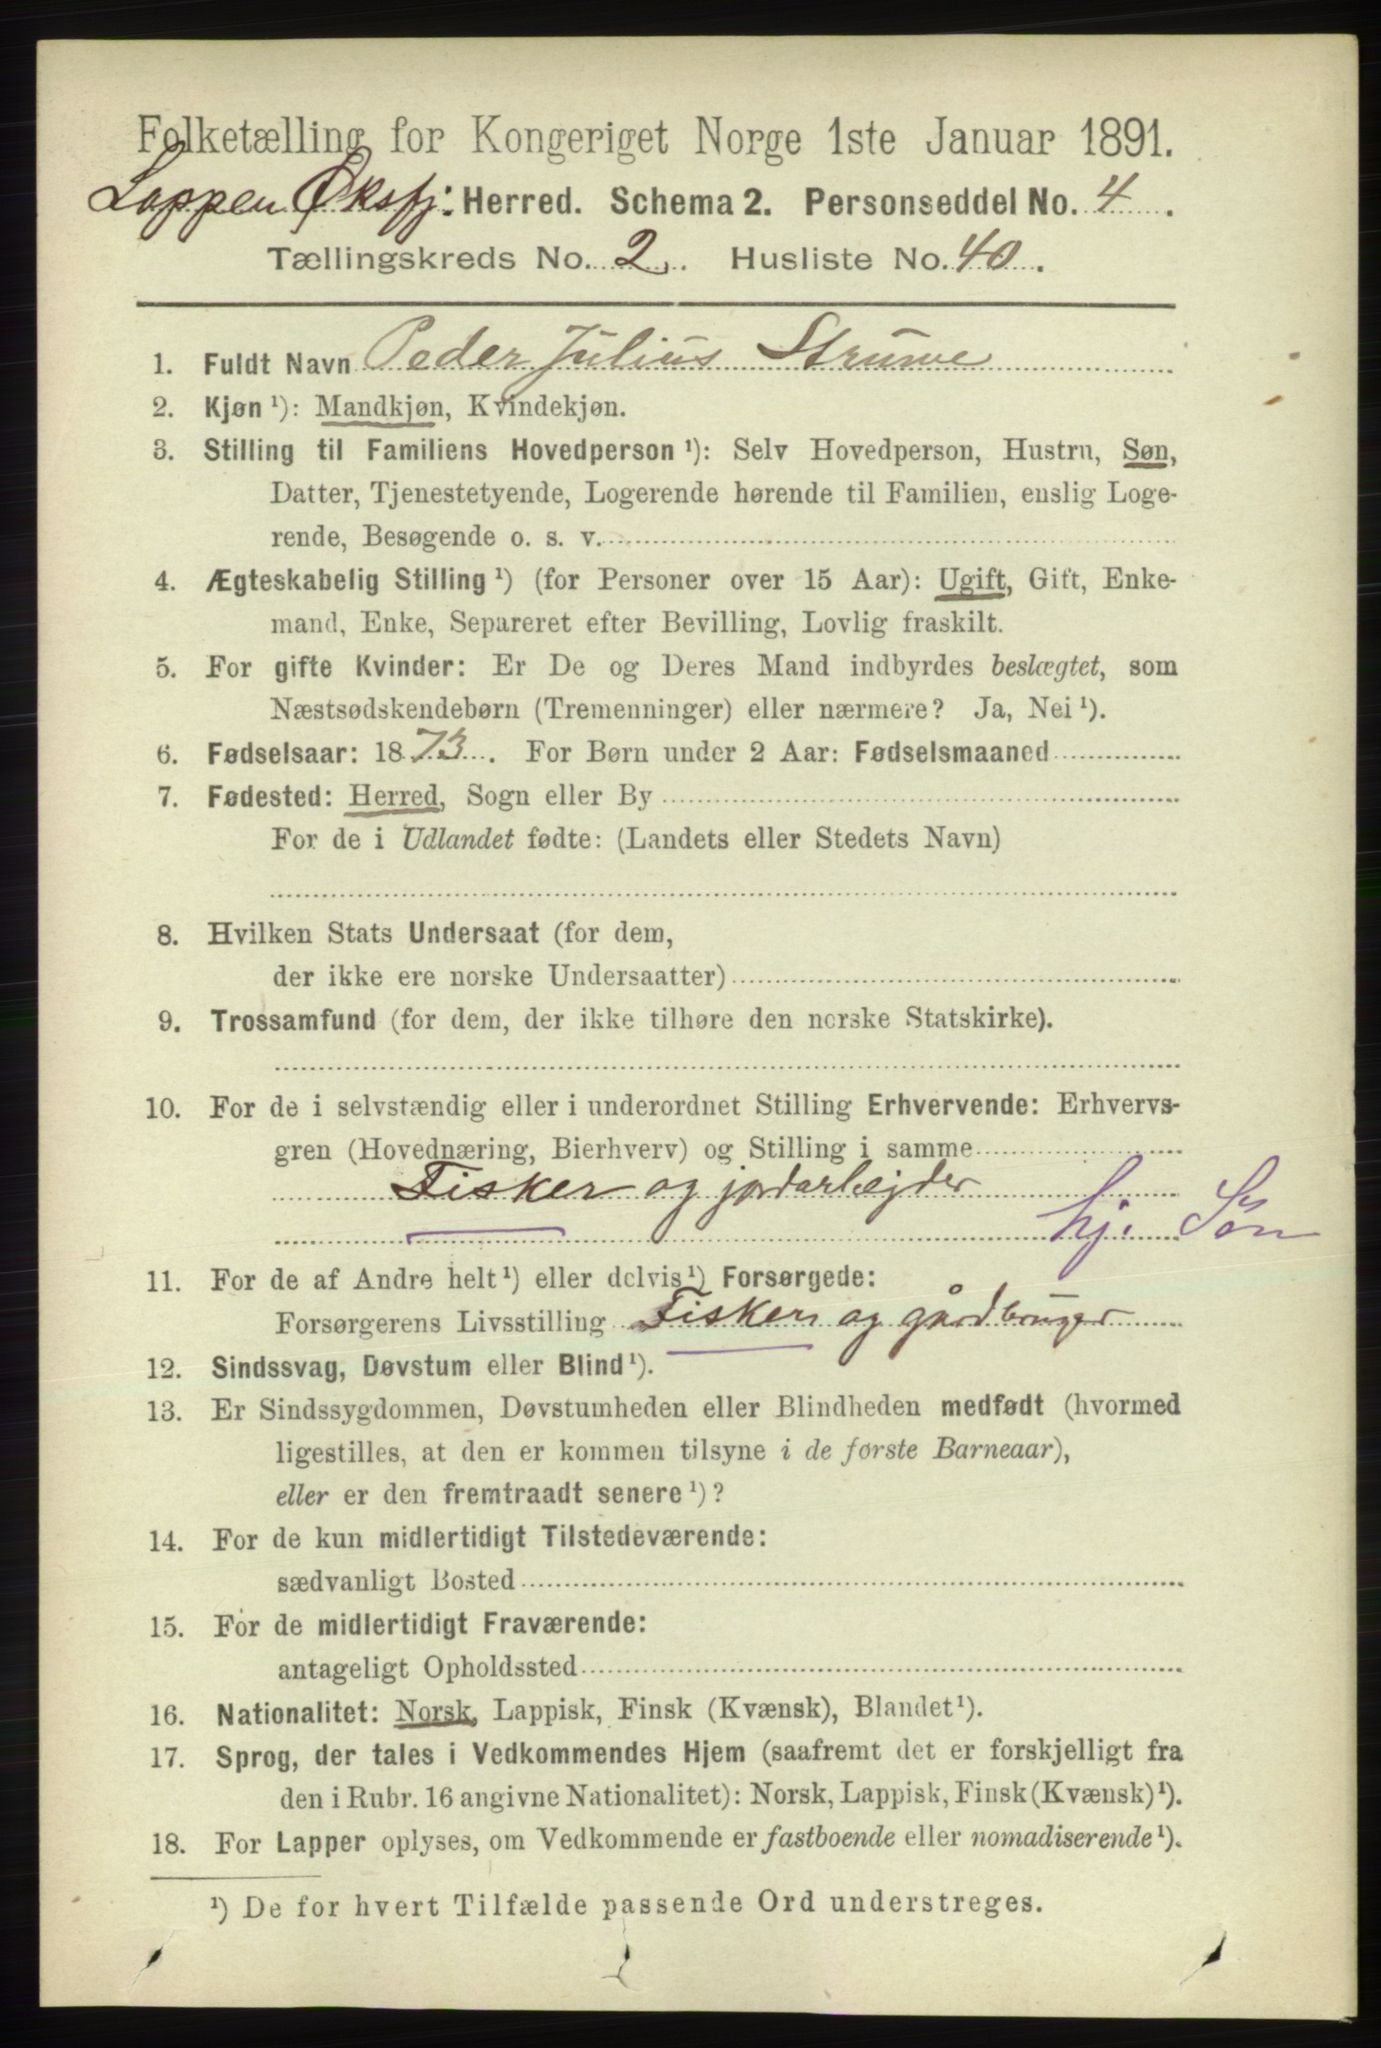 Folketælling for Kongeriget Norge 1ste Januar 1891.
Loppen Øksfj: Herred. Schema 2. Personseddel No. 4.
Tællingskreds No. 2. Husliste No. 40.
1. Fuldt Navn Peder Julius Struwe
2. Kjøn ¹): Mandkjøn, Kvindekjøn.
3. Stilling til Familiens Hovedperson ¹): Selv Hovedperson, Hustru, Søn,
Datter, Tjenestetyende, Logerende hørende til Familien, enslig Loge-
rende, Besøgende o. s. v.
4. Ægteskabelig Stilling ¹) (for Personer over 15 Aar): Ugift, Gift, Enke-
mand, Enke, Separeret efter Bevilling, Lovlig fraskilt.
5. For gifte Kvinder: Er De og Deres Mand indbyrdes beslægtet, som
Næstsødskendebørn (Tremenninger) eller nærmere? Ja, Nei ¹).
6. Fødselsaar: 1873. For Børn under 2 Aar: Fødselsmaaned
7. Fødested: Herred, Sogn eller By
For de i Udlandet fødte: (Landets eller Stedets Navn)
8. Hvilken Stats Undersaat (for dem,
der ikke ere norske Undersaatter)
9. Trossamfund (for dem, der ikke tilhøre den norske Statskirke).
10. For de i selvstændig eller i underordnet Stilling Erhvervende: Erhvervs-
gren (Hovednæring, Bierhverv) og Stilling i samme
Fisker og jordarbejder
hj. Søn
11. For de af Andre helt ¹) eller delvis ¹) Forsørgede:
Forsørgerens Livsstilling Fisker og gårdbruger
12. Sindssvag, Døvstum eller Blind ¹).
13. Er Sindssygdommen, Døvstumheden eller Blindheden medfødt (hvormed
ligestilles, at den er kommen tilsyne i de første Barneaar),
eller er den fremtraadt senere ¹)?
14. For de kun midlertidigt Tilstedeværende:
sædvanligt Bosted
15. For de midlertidigt Fraværende:
antageligt Opholdssted
16. Nationalitet: Norsk, Lappisk, Finsk (Kvænsk), Blandet ¹).
17. Sprog, der tales i Vedkommendes Hjem (saafremt det er forskjelligt fra
den i Rubr. 16 angivne Nationalitet): Norsk, Lappisk, Finsk (Kvænsk) ¹).
18. For Lapper oplyses, om Vedkommende er fastboende eller nomadiserende ¹).
¹) De for hvert Tilfælde passende Ord understreges.